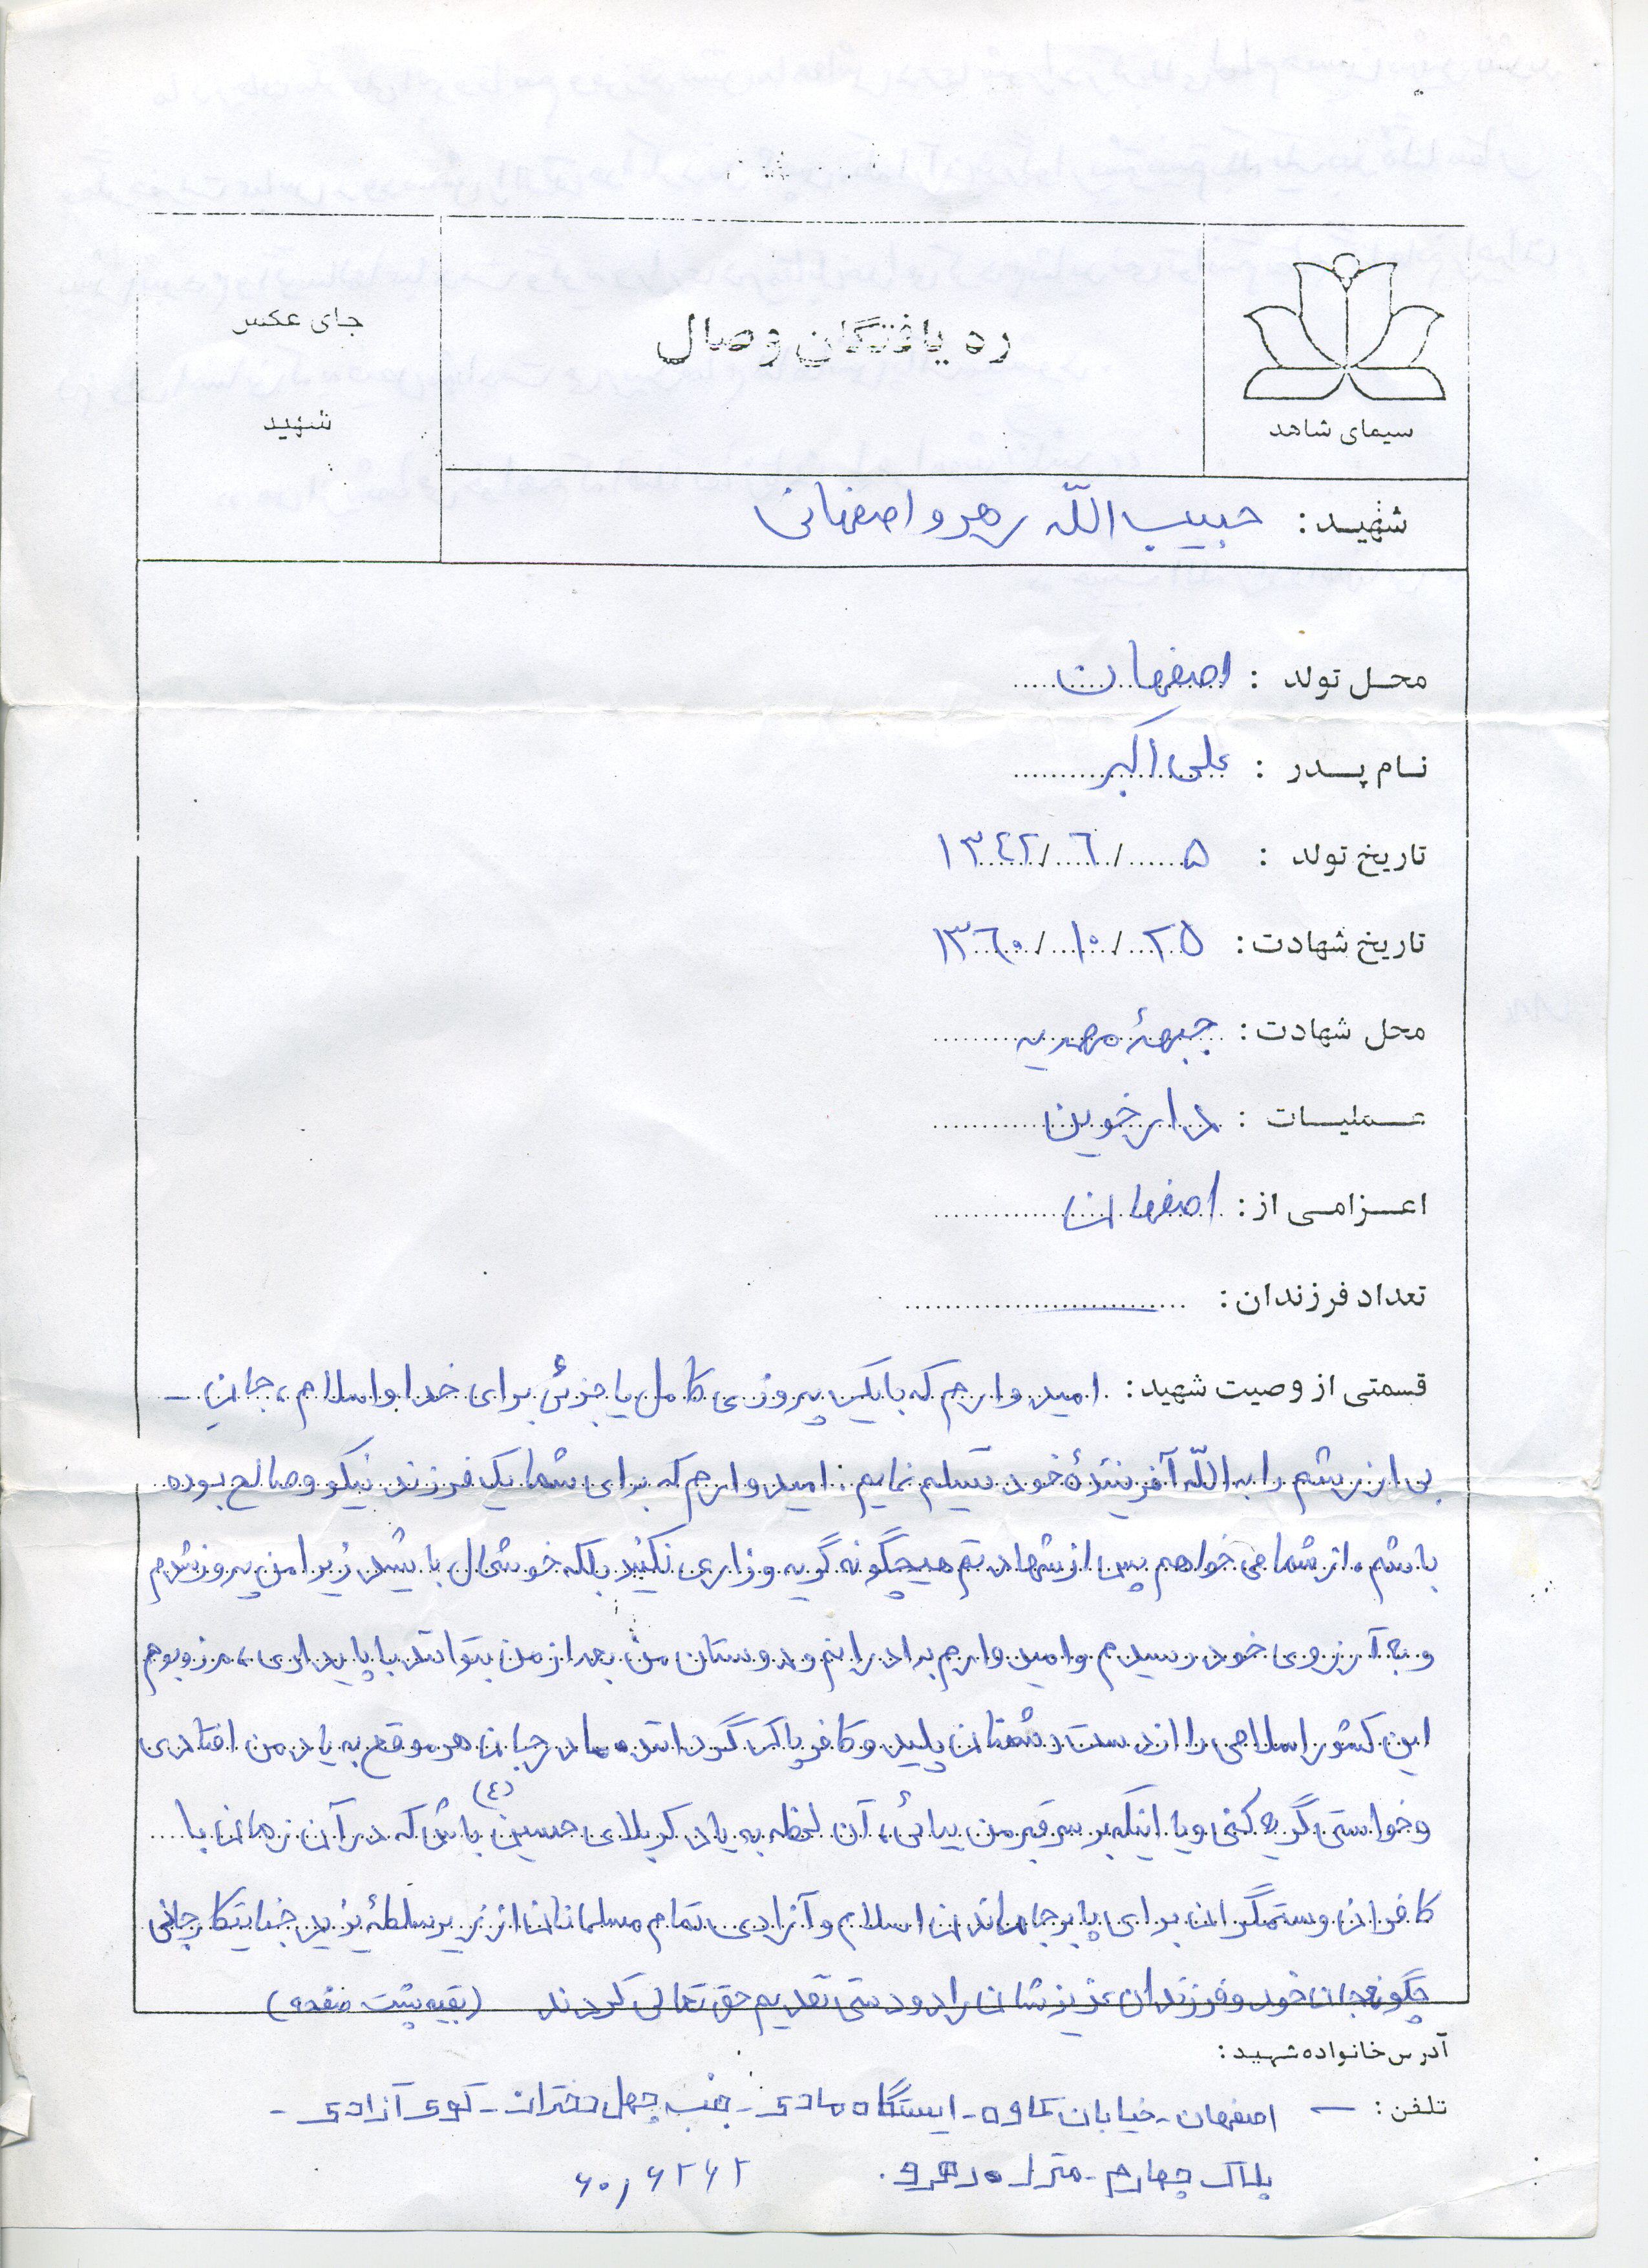 سیمای شاهد
ره یافتگان وصال
جای عکس
شهید
شهید : حبیب اللّه رهرو اصفهانی
محل تولد : اصفهان
نام پدر : علی اکبر
تاریخ تولد : ۵ / ٦ / ۱۳٤۲
تاریخ شهادت : ۲۵ / ۱۰ / ۱۳٦۰
محل شهادت : جبههٔ مهدیه
عملیات : دارخوین
اعزامی از : اصفهان
تعداد فرزندان :
قسمتی از وصیت شهید : امیدوارم که با یک پیروزی کامل یا جزئی برای خدا و اسلام، جان -
بی ارزشم را به اللّه آفرینندهٔ خود تسلیم نمایم. امیدوارم که برای شما یک فرزند نیکو و صالح بوده
باشم. از شما می خواهم پس از شهادتم هیچگونه گریه و زاری نکنید بلکه خوشحال باشید زیرا من پیروز شدم
و به آرزوی خود رسیدم و امیدوارم برادرانم و دوستان من بعد از من بتوانند با پایداری، مرز و بوم
این کشور اسلامی را از دست دشمنان پلید و کافر پاک گردانند. مادر جان هر موقع به یاد من افتادی
و خواستی گریه کنی و یا اینکه بر سر قبر من بیائی، آن لحظه به یاد کربلای حسین (ع) باش که در آن زمان با
کافران و ستمگران برای پابرجا ماندن اسلام و آزادی تمام مسلمانان از زیر سلطهٔ یزید جنایتکار جانی
چگونه جان خود و فرزندان عزیزشان را دو دستی تقدیم حق تعالی کردند (بقیه پشت صفحه)
آدرس خانواده شهید :
تلفن : — اصفهان - خیابان کاوه - ایستگاه مادی - جنب چهل دختران - کوی آزادی -
پلاک چهارم - منزل رهرو. ۶۰٫۶۲۶۲